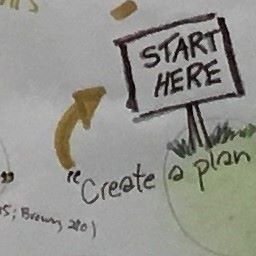 START
HERE
"Create a plan
; Brown, 2101